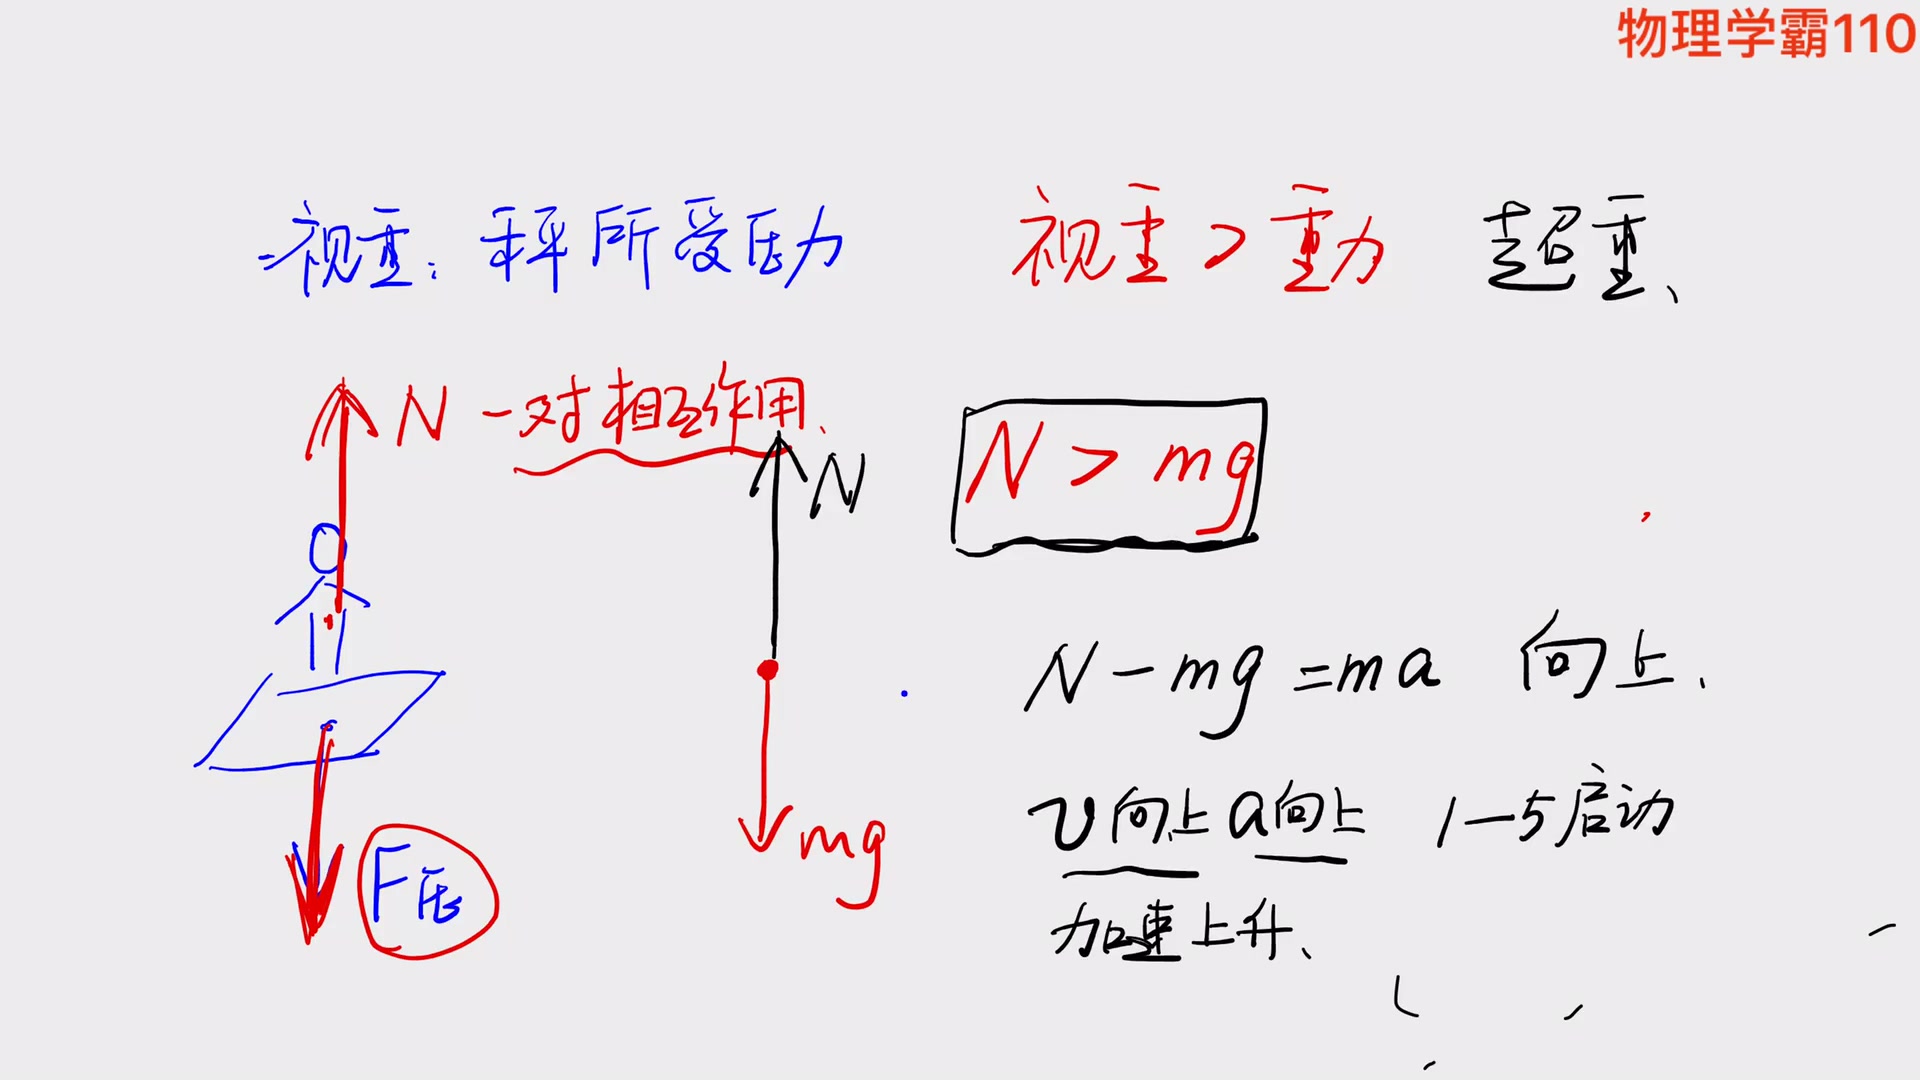 物理学霸110
视重：秤所受压力
视重>重力 超重、
N 一对相互作用、
N
N > mg
N - mg = ma 向上.
mg
F压
v向上 a向上 1-5启动
加速上升、